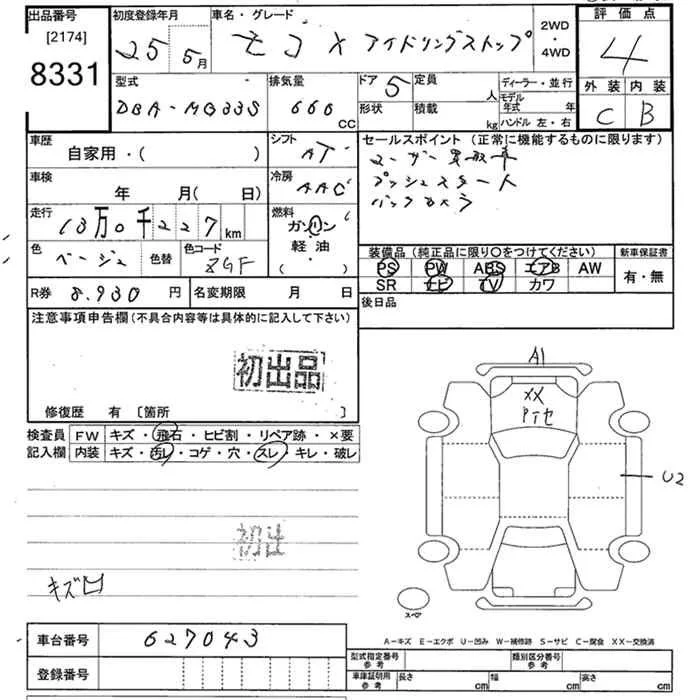 出品番号 初度登録年月 車名・グレード 2WD・4WD 評価点
[2174]
8331 25 5月 モコ X アイドリングストップ 4
型式 排気量 ドア 5 定員 人 ディーラー・並行 外装 内装
DBA-MG33S 660 CC 形状 積載 kg モデル年式 年 ハンドル 左・右 C B
車歴 シフト セールスポイント (正常に機能するものに限ります)
自家用・( ) AT ユーザー買取車
車検 冷房 プッシュスタート
年 月(日) AAC バックカメラ
走行 燃料
13万0千227km ガソリン
色 ベージュ 色替 色コード 軽油 装備品 (純正品に限り〇をつけてください) 新車保証書
( ・ ) PS PW ABS エアB AW 有・無
R券 8,930円 名変期限 月 日 SR ナビ TV カワ
注意事項申告欄(不具合内容等は具体的に記入して下さい) 後日品
初出品
修復歴 有 [箇所 ]
検査員 FW キズ・飛石・ヒビ割・リペア跡・×要
記入欄 内装 キズ・汚レ・コゲ・穴・スレ・キレ・破レ
A1
XX
U2
初出
キズ凹
スペア
車台番号 627043 A-キズ E-エクボ U-凹み W-補修跡 S-サビ C-腐食 XX-交換済
型式指定番号 参考 類別区分番号 参考
登録番号 車庫証明用 参考 長さ cm 幅 cm 高さ cm